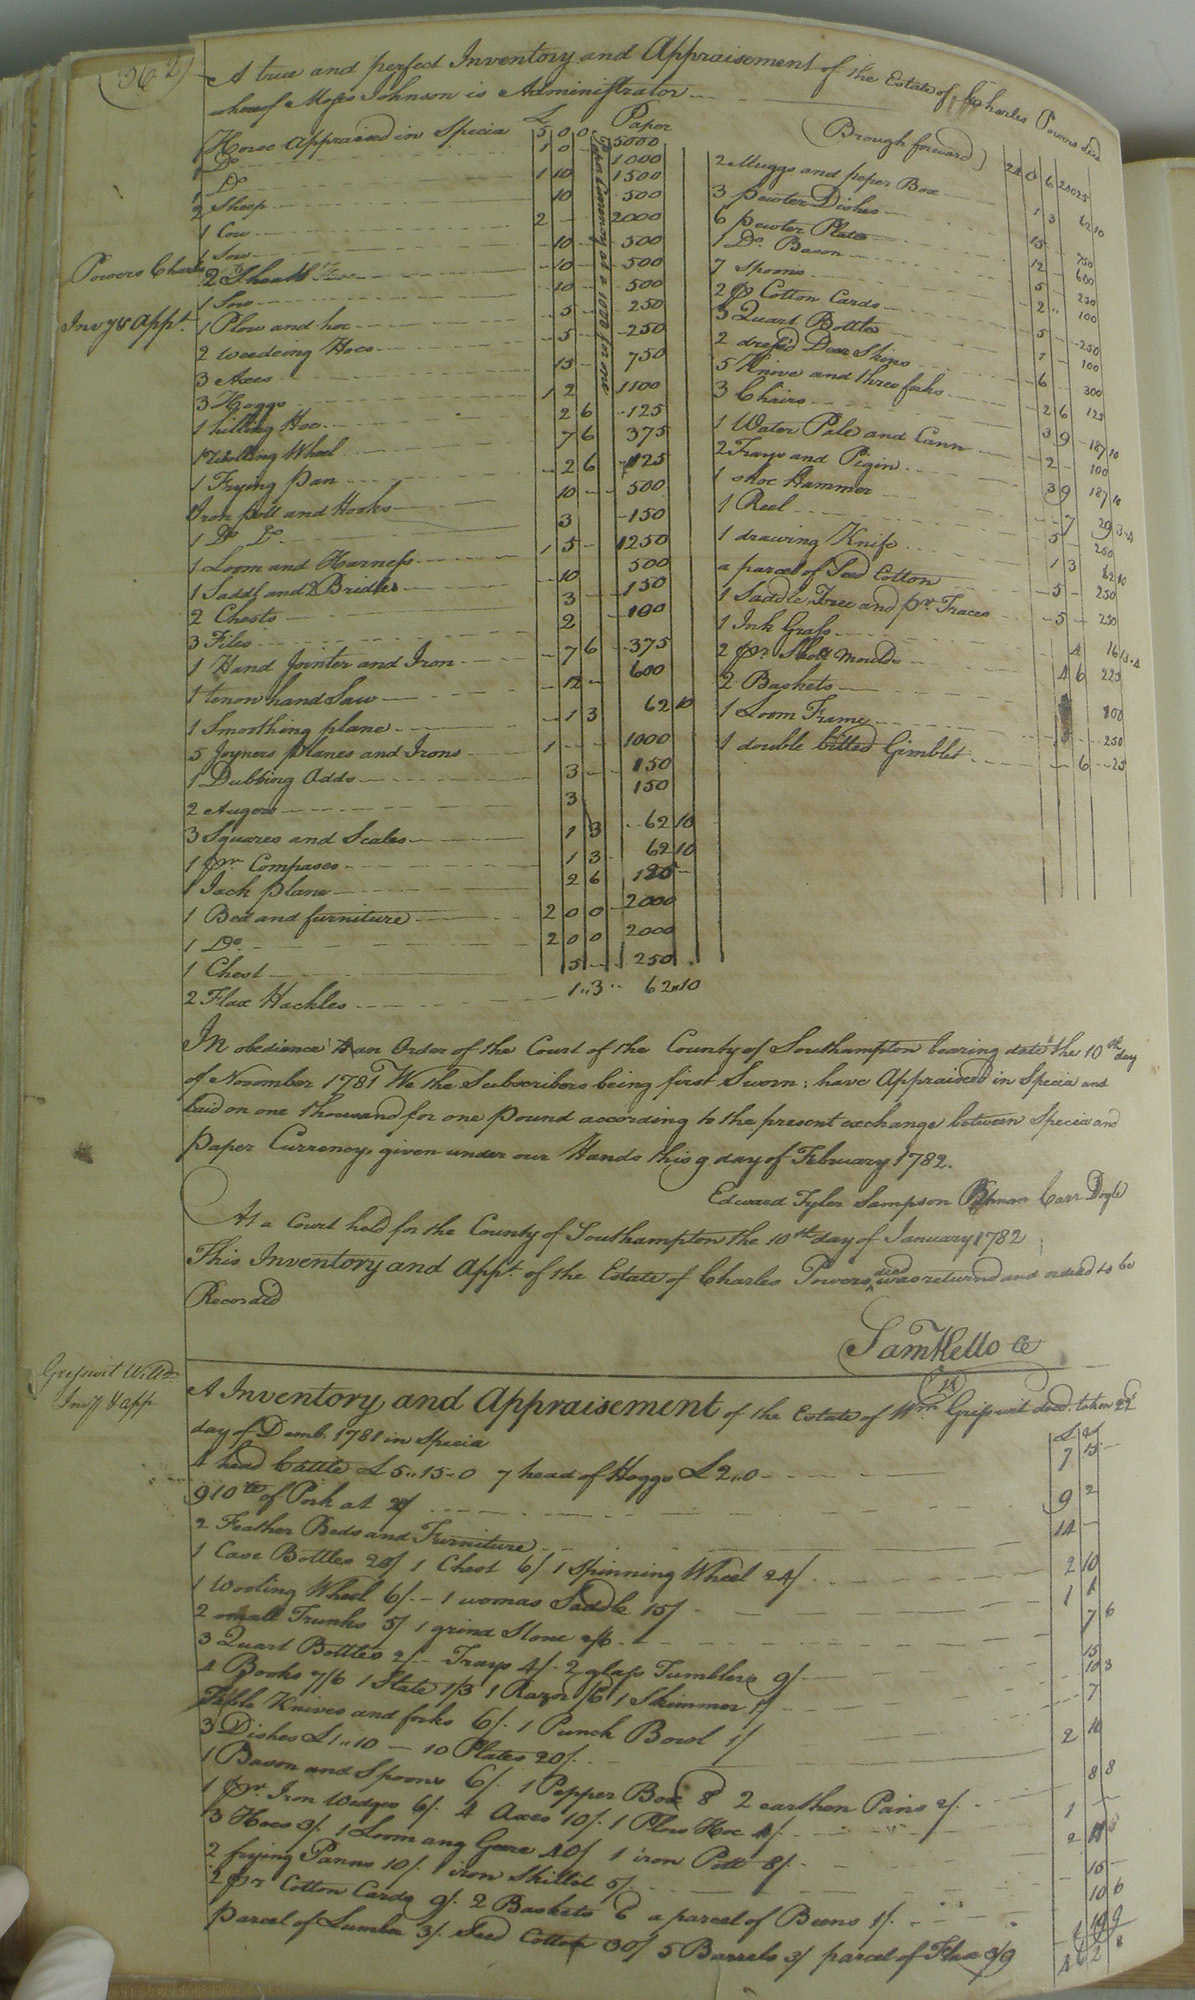 362)
A true and perfect Inventory and Appraisement of the Estate of Charles Powers decd
whereof Moses Johnson is Administrator
£ Paper
Horse Appraised in Specia 5 0 0 5000
1 Do 1 0 1000
1 Do 1 10 1500
2 Sheep 10 500
1 Cow 2 2000
1 Sow 10 500
Powers Charles
Invy & Appt.
2 Shoats 10 500
1 Sow 10 500
1 Plow and hoe 5 250
2 weedeing Hoes 5 250
3 Axes 15 750
3 Hoggs 1 2 1100
1 hilling Hoe 2 6 125
1 Wolling Wheel 7 6 375
1 Frying pan 2 6 125
Iron pott and Hooks 10 500
1 Do Do 3 150
1 Loom and Harness 1 5 1250
1 Saddl and 2 Bridles 10 500
2 Chests 3 150
3 Files 2 100
1 Hand Jointer and Iron 7 6 375
1 tenon hand Saw 12 600
1 Smoothing plane 1 3 62 10
5 Joyners planes and Irons 1 1000
1 Dubbing Adds 3 150
2 Augers 3 150
3 Squares and Scales 1 3 62 10
1 pr Compases 1 3 62 10
1 Jack plane 2 6 125
1 Bed and furniture 2 0 0 2000
1 Do 2 0 0 2000
1 Chest 5 250
2 Flax Hackles 1 3 62 10
(Brough forward)
2 Muggs and peper Box 1 3 62 10
3 pewter Dishes 15 750
6 pewter Plates 12 600
1 Do Bason 5 250
7 Spoons 2 100
2 pr Cotton Cards 5 250
3 Quart Bottles 100
2 dressd Deer Skins 6 300
5 Knive and three forks 2 6 125
3 Chairs 3 9 187 10
1 Water Pale and Cann 2 100
2 Trays and Pigin 3 9 187 10
1 shoe Hammer 7 29 3 4
1 Reel 5 250
1 drawing Knife 1 3 62 10
a parcel of Seed Cotton 5 250
1 Saddle Tree and pr Traces 5 250
1 Ink Glass 4 16 13 4
2 pr Shott moulds 4 6 225
2 Baskets 100
1 Loom Frame 250
1 double bitted Gimblet 6 25
In obedience to an Order of the Court of the County of Southampton bearing date the 10th day
of November 1781 We the Subscribers being first Sworn; have Appraised in Specia and
laid on one thousand for one pound according to the present exchange between Specia and
paper Currency, given under our Hands this 9 day of February 1782.
Edward Tyler Sampson Pitman Carr Doyle
At a Court held for the County of Southampton the 10th day of January 1782
This Inventory and Appt. of the Estate of Charles Powers decd was returnd and ordered to be
Recorded
Sam Kello Cl
Griswit Willm
Invy & app
A Inventory and Appraisement of the Estate of Wm Griswit decd. taken 22d
day of Decmb. 1781 in Specia
4 head Cattle £5..15..0 7 head of Hoggs £2..0 7 15
910 lb of Pork at 9 2
2 Feather Beds and Furniture 14
1 Case Bottles 20/ 1 Chest 6/ 1 Spinning Wheel 24/ 2 10
1 Wooling Wheel 6/ 1 womas Saddle 15/ 1 1
2 small Trunks 5/ 1 grind Stone 2/6 7 6
3 Quart Bottles 2/ Trays 4/ 2 glass Tumblers 9/ 15
4 Books 7/6 1 Slate 1/3 1 Razor /6 1 Skimmer 1/ 10 3
Table Knives and forks 6/. 1 Punch Bowl 1/ 7
3 Dishes £1..10 10 Plates 20/. 2 10
1 Bason and Spoons 6/. 1 Pepper Box 8 2 earthen Pans 2/. 8 8
1 pr. Iron Wedges 6/. 4 Axes 10/. 1 Plow Hoe 4/. 1
3 Hoes 3/. 1 Loom ang Geare 40/ 1 iron Pott 8/. 2 11
2 frying Panns 10/. iron Skillit 5/. 15
2 pr Cotton Cards 9/. 2 Baskets 6 a parcel of Beens 1/. 10 6
Parcel of Lumber 3/. Seed Cotton 30/ 5 Barrels 3/ parcel of Flax 3/9 1 19 9